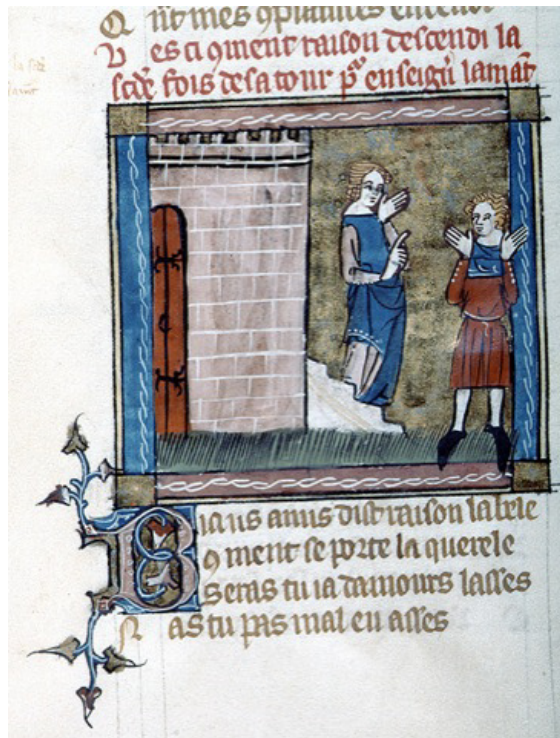 Q nt mes ꝯplaintes
V es ci ꝯment raison descendi la
fois de sa tour enseign̄ lamāt
Biaus amis dist raison la bele
ꝯment se porte la querele
Seras tu ia damours lasses
N as tu pas mal eu asses